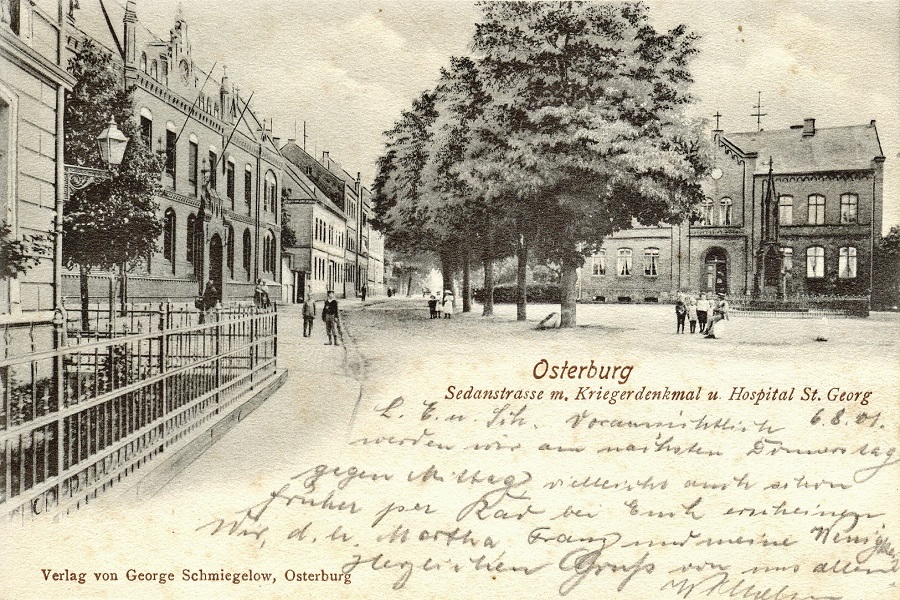 Osterburg
Sedanstrasse m. Kriegerdenkmal u. Hospital St. Georg
L. E. u. Sch. Voraussichtlich 6.8.01.
werden wir am nächsten Donnerstag
gegen Mittag vielleicht auch schon
früher per Rad bei Euch erscheinen
Wir, d. h. Martha, Franz und meine Wenigkeit
Herzlichen Gruß von uns allen
Verlag von George Schmiegelow, Osterburg